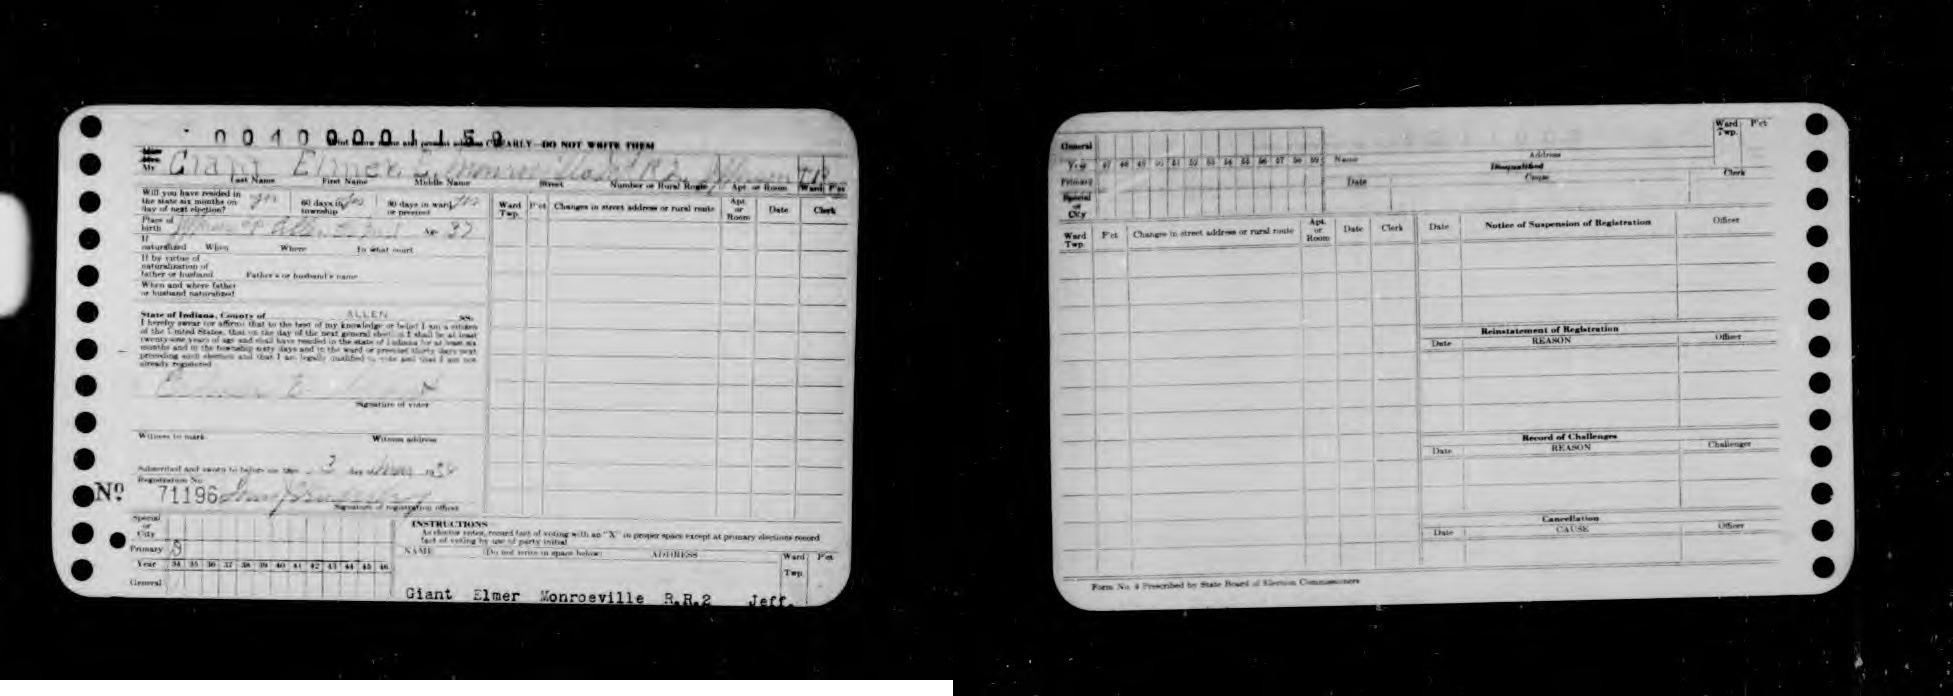 0040001150
CLEARLY—DO NOT WRITE THEM
Mr. Giant Elmer E. R2 Jefferson Tp
Last Name First Name Middle Name Street Number or Rural Route Apt. or Room Ward P'ct
Will you have resided in the state six months on day of next election? yes 60 days in township yes 30 days in ward or precinct yes
Place of birth Age 37
If naturalized When Where In what court
If by virtue of naturalization of father or husband Father's or husband's name
When and where father or husband naturalized
State of Indiana, County of ALLEN ss.
I hereby swear (or affirm) that to the best of my knowledge or belief I am a citizen
of the United States, that on the day of the next general election I shall be at least
twenty-one years of age and shall have resided in the state of Indiana for at least six
months and in the township sixty days and in the ward or precinct thirty days next
preceding such election and that I am legally qualified to vote and that I am not
already registered
Elmer E. Giant
Signature of voter
Witness to mark Witness address
Subscribed and sworn to before me this 3
Registration No.
No 71196
Signature of registration officer
Ward Twp. P'ct Changes in street address or rural route Apt. or Room Date Clerk
Special or City
Primary
Year 34 35 36 37 38 39 40 41 42 43 44 45 46
General
INSTRUCTIONS
As elector votes, record fact of voting with an "X" in proper space except at primary elections record
fact of voting by use of party initial
NAME (Do not write in space below) ADDRESS Ward Twp. P'ct
Giant Elmer Monroeville R.R.2 Jeff.
General
Year 47 48 49 50 51 52 53 54 55 56 57 58 59
Primary
Special or City
Name Address Ward Twp. P'ct
Disqualified
Date Cause Clerk
Ward Twp. P'ct Changes in street address or rural route Apt. or Room Date Clerk
Date Notice of Suspension of Registration Officer
Reinstatement of Registration
Date REASON Officer
Record of Challenges
Date REASON Challenger
Cancellation
Date CAUSE Officer
Form No. 4 Prescribed by State Board of Election Commissioners